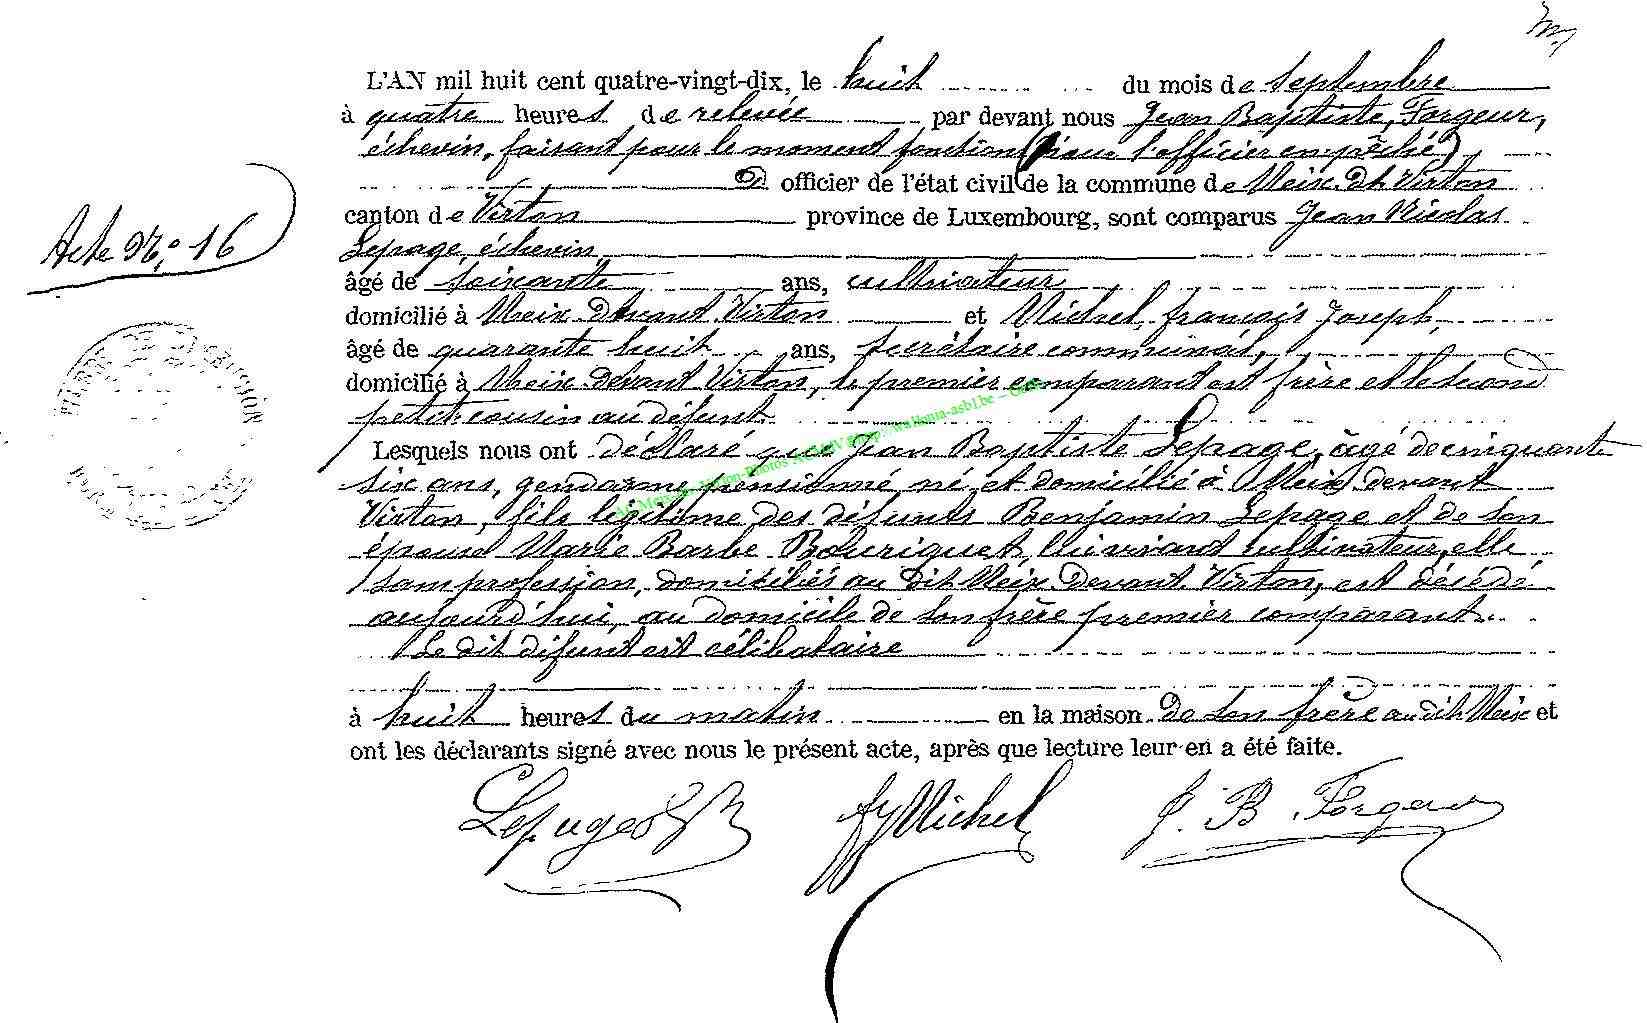 L'AN mil huit cent quatre-vingt-dix, le huit du mois de septembre
à quatre heures de relevée par devant nous Jean Baptiste Forgeur,
échevin, faisant pour le moment fonction (pour l'officier empêché)
d' officier de l'état civil de la commune de Meix-dt-Virton
canton de Virton province de Luxembourg, sont comparus Jean Nicolas
Acte No. 16
Lepage, échevin
âgé de soixante ans, cultivateur
domicilié à Meix-devant-Virton et Michel, françois Joseph,
âgé de quarante huit ans, secrétaire communal,
domicilié à Meix-devant Virton, le premier comparant est frère et le second
petit-cousin au défunt
Lesquels nous ont déclaré que Jean Baptiste Lepage, âgé de cinquante
six ans, gendarme pensionné, né et domicilié à Meix-devant
Virton, fils légitime des défunts Benjamin Lepage et de son
épouse Marie Barbe Bouriquet, lui vivant cultivateur, elle
sans profession, domiciliés au dit Meix-devant-Virton, est décédé
aujourd'hui, au domicile de son frère premier comparant.
Le dit défunt est célibataire
à huit heures du matin en la maison de son frère au dit Meix et
ont les déclarants signé avec nous le présent acte, après que lecture leur en a été faite.
Lepage Michel J. B. Forgeur